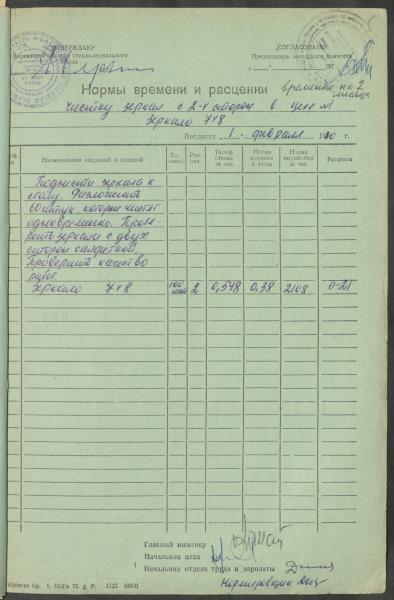 „УТВЕРЖДАЮ“
„СОГЛАСОВАНО“
Директор Рижского стекло-зеркального
Председатель заводского комитета
197
Нормы времени и расценки
временно на 2
месяца
чистку зеркал с 2-х сторон в цехе №1
зеркало 7×8
Вводятся 1. февраля
Наименование операций и изделий
Ед. измер.
Раз-ряд
Тариф. ставка за час.
Норма времени в часах
Норма выработки за час.
Расценок
Подносить зеркала к
столу. Разложить
60 штук, которые чистят
одновременно. Проте-
реть зеркала с двух
сторон салфеткой.
Проверить качество
работ
зеркало 7×8 100 2 0,548 0,38 2108 0-21
Главный инженер
Начальник цеха
Начальник отдела труда и зарплаты
Нормировщик